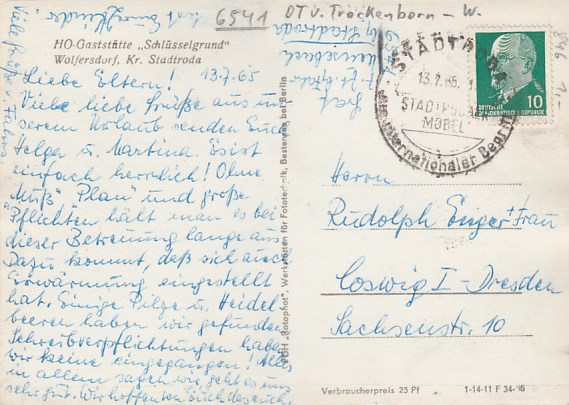 6541 OT v. Trockenborn - W.
HO-Gaststätte „Schlüsselgrund"
Wolfersdorf, Kr. Stadtroda
Liebe Eltern! 13.7.65
Viele liebe Grüße aus un
serem Urlaub senden Euch
Helga u. Martina. Es ist
einfach herrlich! Ohne
„Muß" „Plan" und große
„Pflichten" hält man es bei
dieser Betreuung lange aus
Dazu kommt, daß sich auch
Erwärmung eingestellt
hat. Einige Pilze u. Heidel
beeren haben wir gefunden
Schreibverpflichtungen haben
wir keine eingegangen! Alles
in allem sagen wir, geht es uns
sehr gut. Wir hoffen von Euch das auch
Viele Grüße
Stadtroda
PGH „Fotophot", Werkstätten für Fototechnik, Bestensee bei Berlin
STADTRODA
13.7.65
STADTRODAER
MÖBEL
ein internationaler Begriff
DEUTSCHE
DEMOKRATISCHE REPUBLIK
10
Herrn
Rudolph + Frau
Coswig I - Dresden
Sachsenstr. 10
Verbraucherpreis 25 Pf
1-14-11 F 34